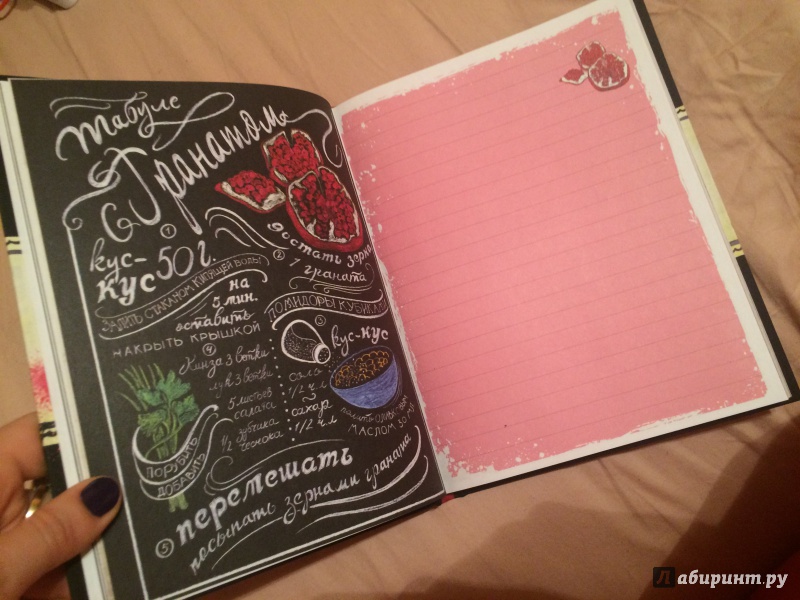 Табуле
с
Гранатом
①
кус-
кус 50 г.
ЗАЛИТЬ СТАКАНОМ КИПЯЩЕЙ ВОДЫ
на
5 мин.
оставить
НАКРЫТЬ КРЫШКОЙ
②
достать зерна
граната
ПОМИДОРЫ КУБИКАМИ
③
кус-кус
соль
1/2 ч.л
сахар
1/2 ч.л
полить ОЛИВКОВЫМ
МАСЛОМ 50 мл
④
Кинза 3 ветки
лук 3 ветки
5 листьев
салата
1/2 зубчика
чеснока
ПОРУБИТЬ
ДОБАВИТЬ
⑤ перемешать
посыпать зернами граната
Лабиринт.ру